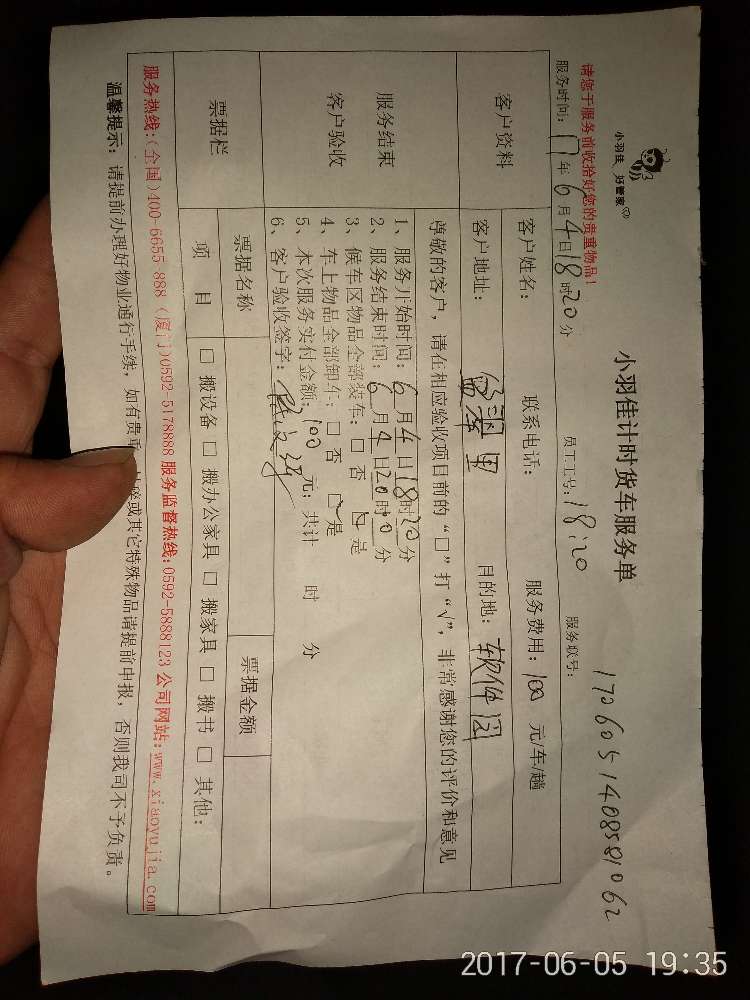 小羽佳 好管家
小羽佳计时货车服务单
请您于服务前收拾好您的贵重物品!
1706051408581062
服务时间: 17年6月4日18时20分 员工工号: 18120 服务联号:
客户资料
客户姓名: 联系电话: 服务费用: 100 元/车/趟
客户地址: 目的地: 软件园
尊敬的客户，请在相应验收项目前的“□”打“√”，非常感谢您的评价和意见
服务结束
客户验收
1、服务开始时间: 6月4日18时20分
2、服务结束时间: 6月4日20时10分
3、候车区物品全部装车: □ 否 ☑ 是
4、车上物品全部卸车: □ 否 ☑ 是
5、本次服务实付金额: 100 元; 共计 时 分
6、客户验收签字:
票据栏
票据名称 票据金额
项 目 □ 搬设备 □ 搬办公家具 □ 搬家具 □ 搬书 □ 其他:
服务热线:(全国)400-6655-888 (厦门)0592-5178888 服务监督热线:0592-5888123 公司网站:www.xiaoyujia.com
温馨提示: 请提前办理好物业通行手续，如有贵重 易碎或其它特殊物品请提前申报，否则我司不予负责。
2017-06-05 19:35